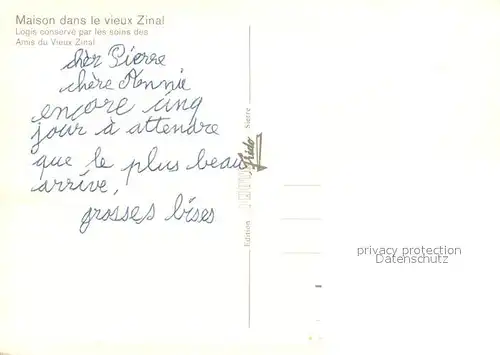 Maison dans le vieux Zinal
Logis conservé par les soins des
Amis du Vieux Zinal
chèr Pierre
chère Annie
encore cinq
jour à attendre
que le plus beau
arrive,
grosses bises
Edition
Sierre
privacy protection
Datenschutz